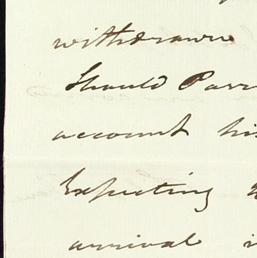 withdrawn
Should Parr
account his
Expecting
arrival i